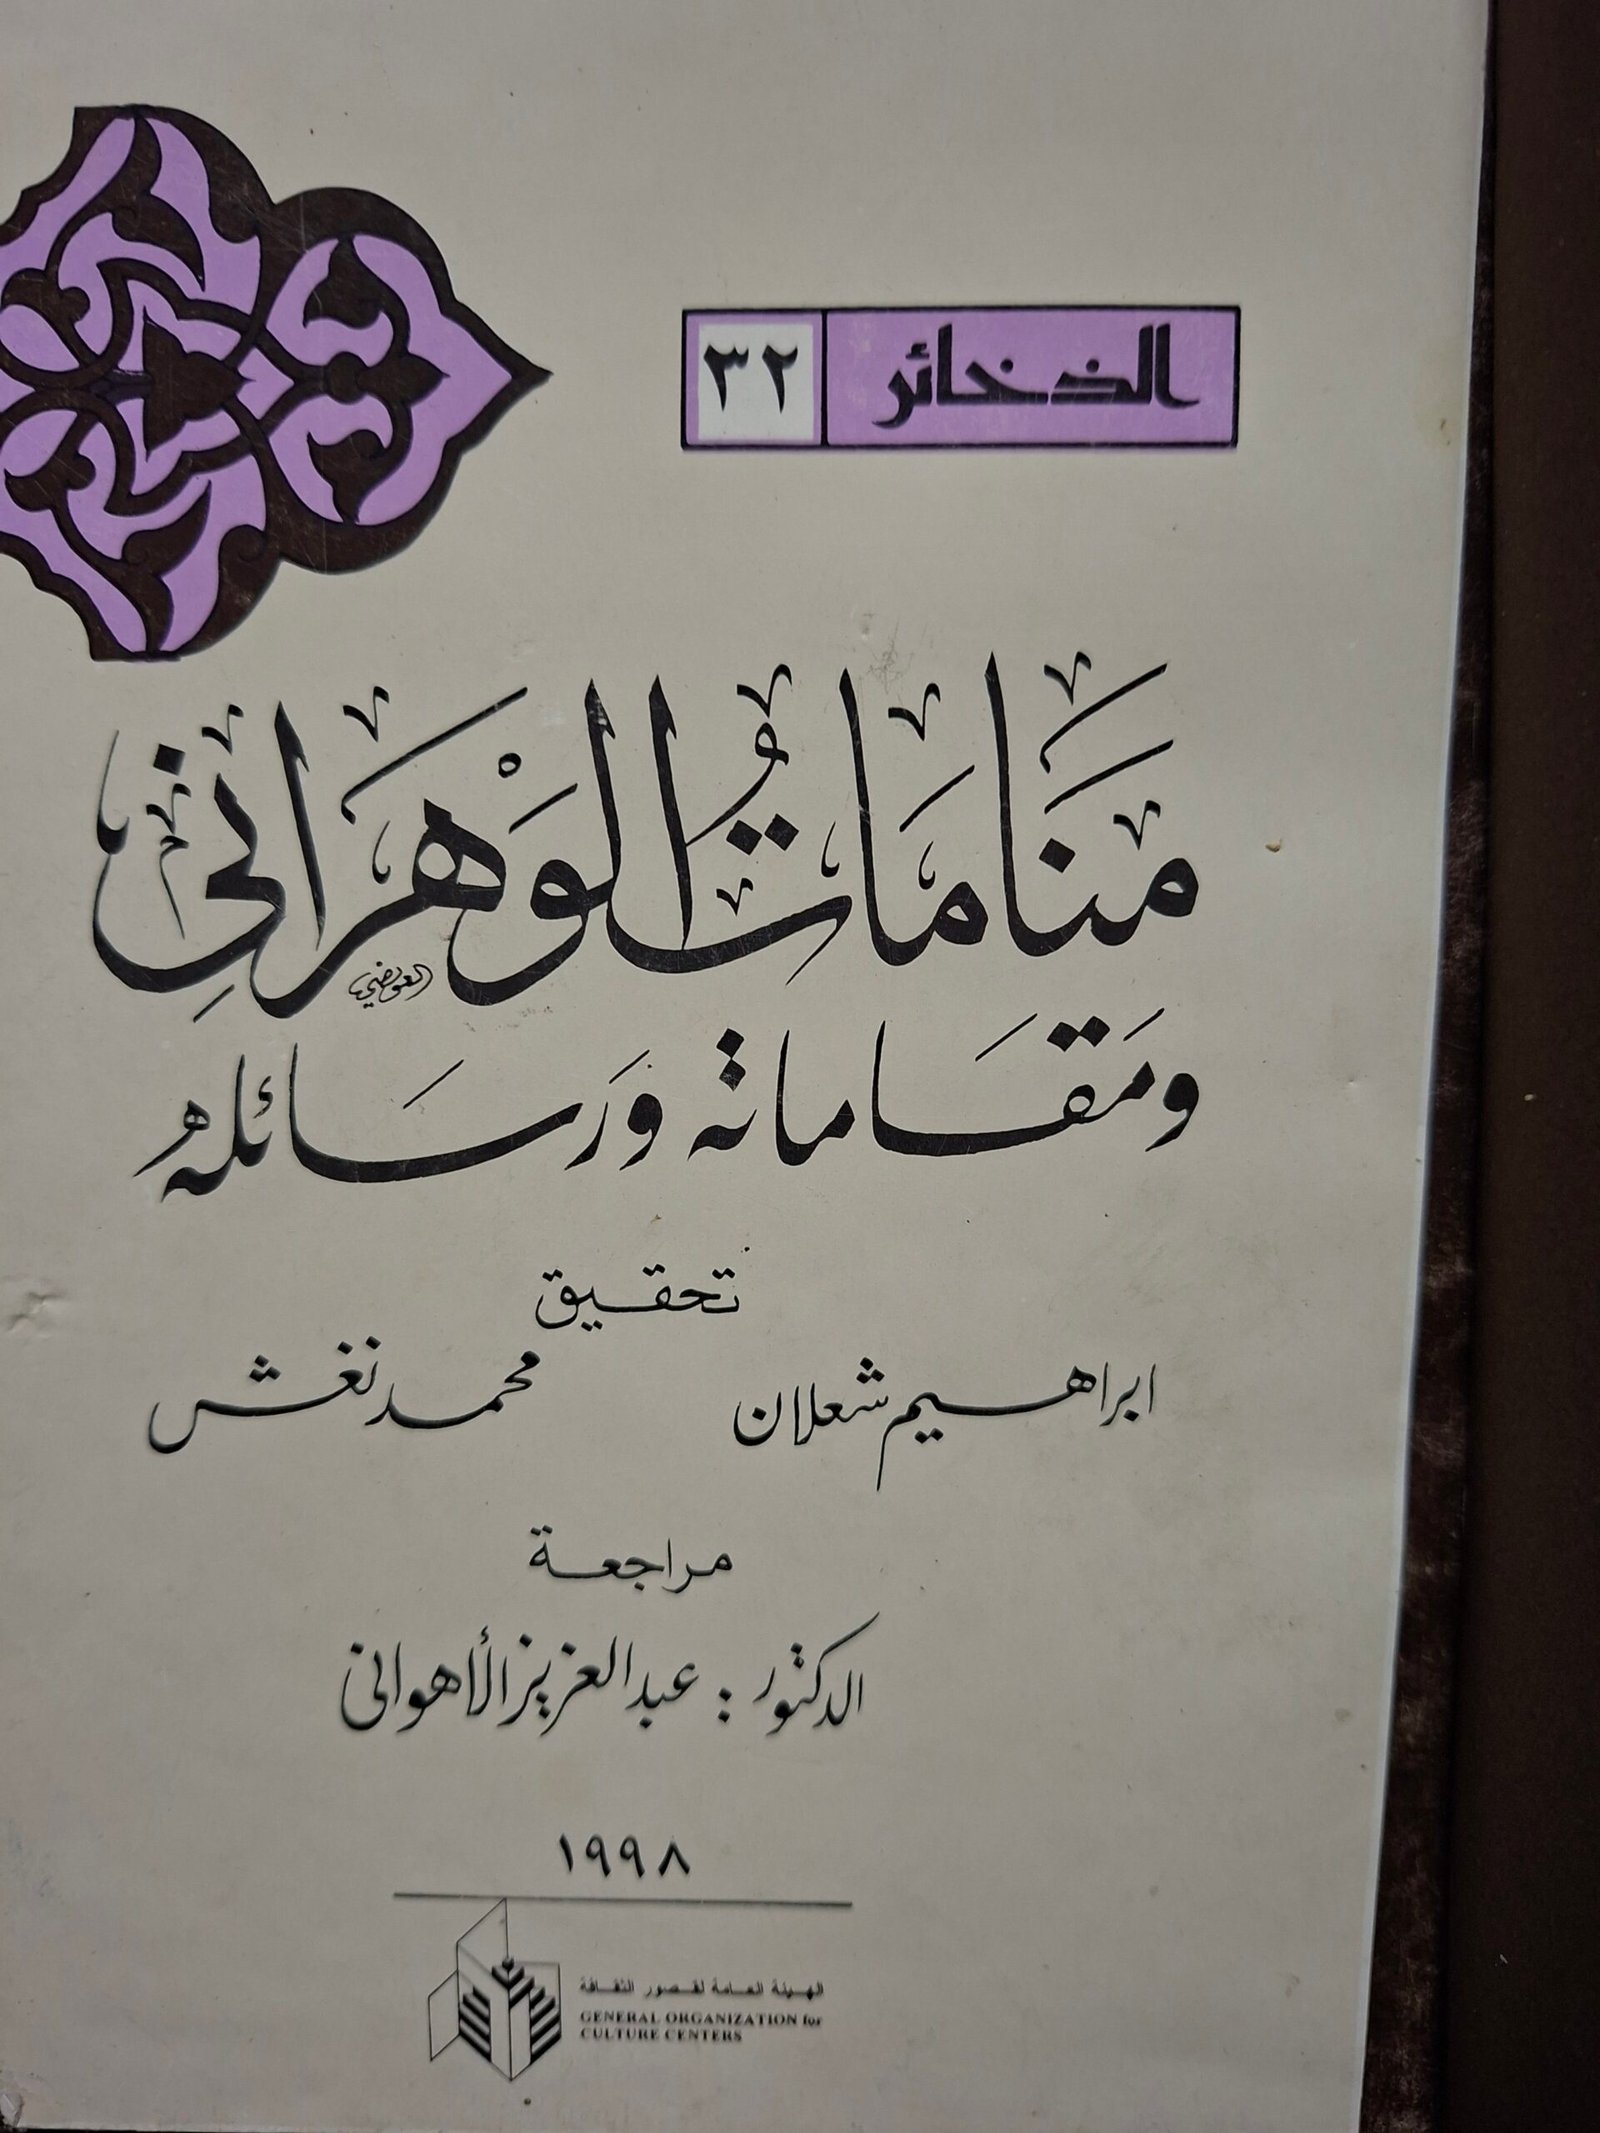 الذخائر ٣٢
مَنَامَاتُ الْوَهْرَانِي
العويضي
ومَقَاماته ورَسَائله
تحقيق
ابراهيم شعلان محمد نغش
مراجعة
الدكتور : عبد العزيز الأهوانى
١٩٩٨
الهيئة العامة لقصور الثقافة
GENERAL ORGANIZATION for
CULTURE CENTERS